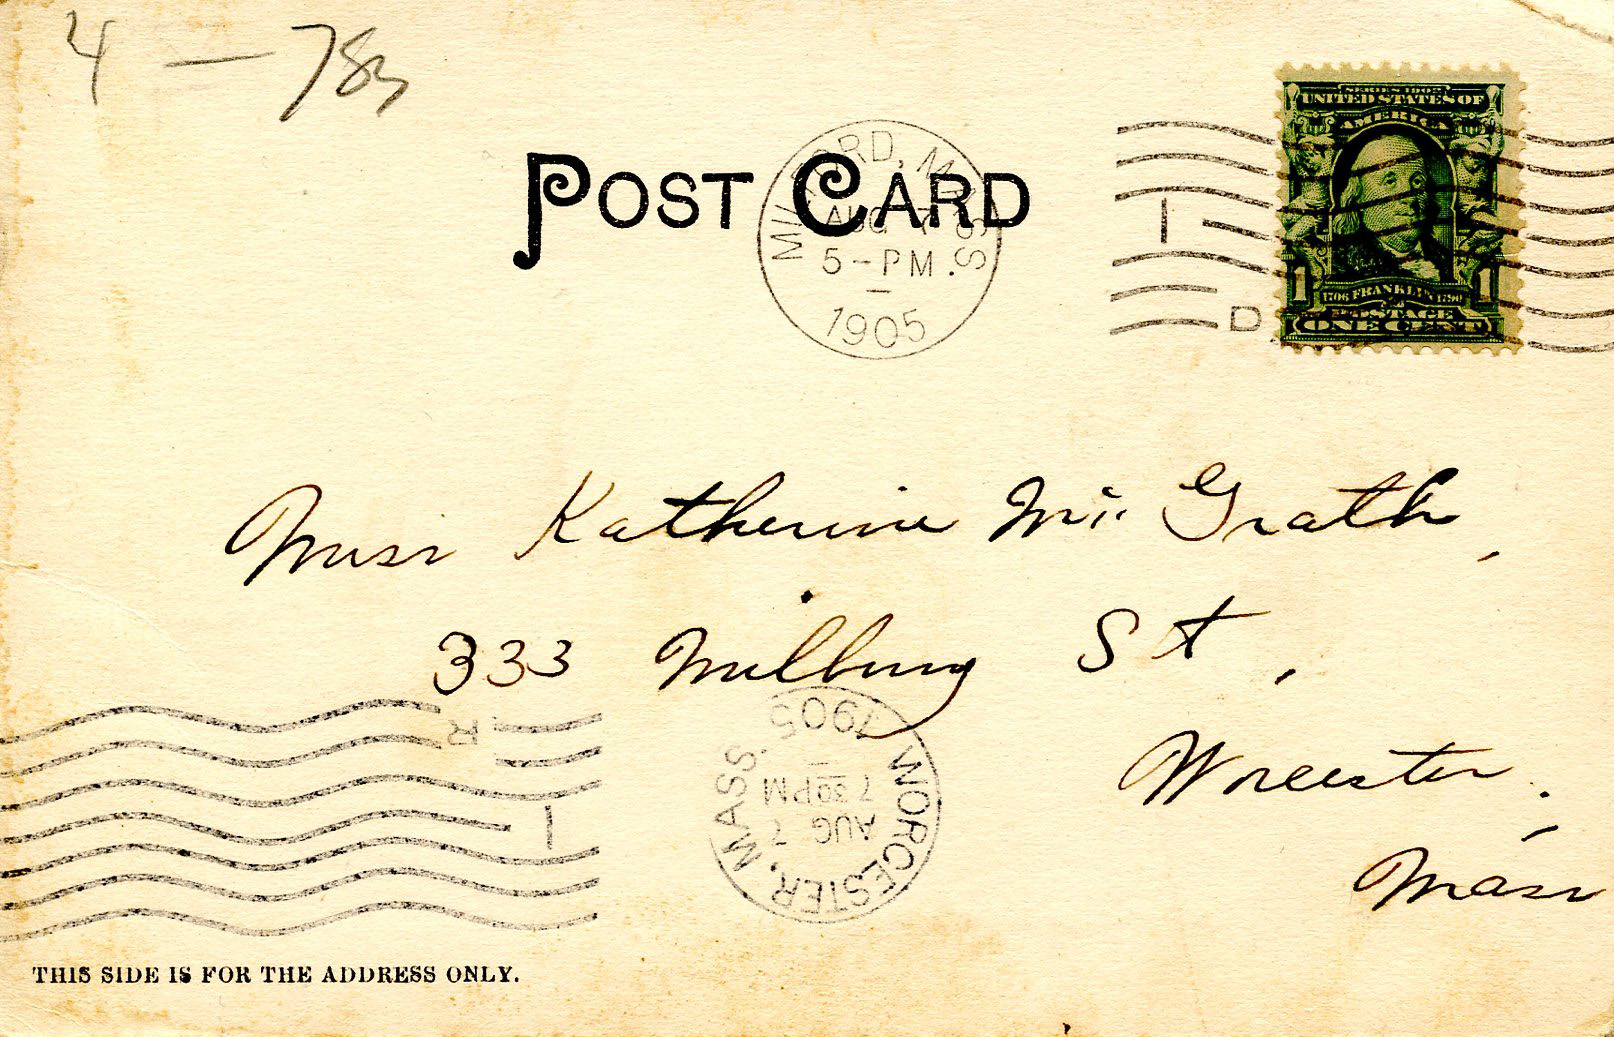 4 — 783
POST CARD
MILFORD, MASS.
AUG 7
5-PM
1905
1
D
SERIES 1902
UNITED STATES OF
AMERICA
1 1
1706 FRANKLIN 1790
POSTAGE
ONE CENT
Miss Katherine Mc Grath,
333 Milbury St,
Worcester.
Mass
R
1
WORCESTER, MASS.
AUG 7
7 30 PM
1905
THIS SIDE IS FOR THE ADDRESS ONLY.